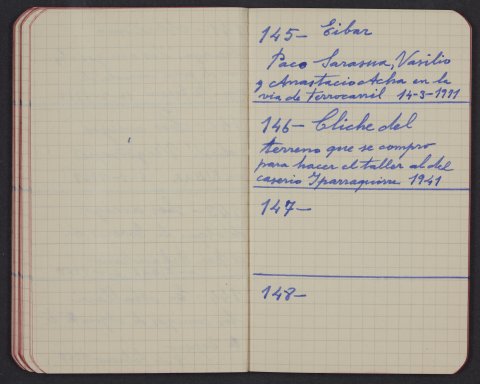 145- Eibar
Paco Sarasua, Vasilio
y Anastacio Acha en la
via de Ferrocarril 14-3-1911
146- Cliche del
terreno que se compro
para hacer el taller al del
caserio Yparraguirre 1941
147-
148-